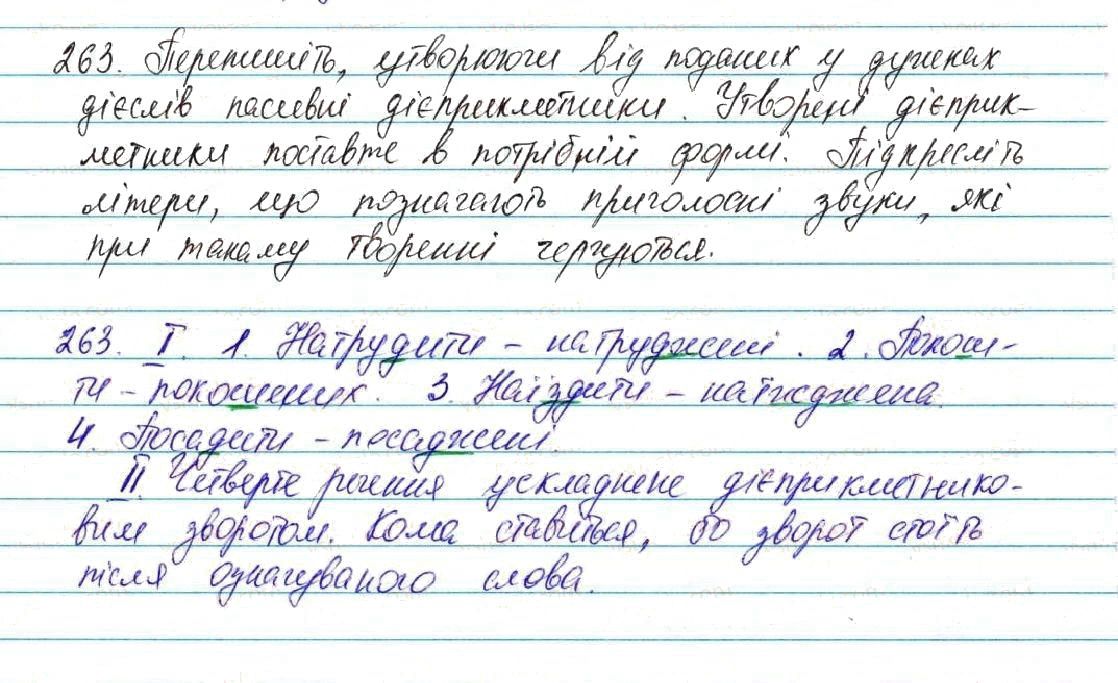 263. Перепишіть, утворюючи від поданих у дужках
дієслів пасивні дієприкметники. Утворені дієприк-
метники поставте в потрібній формі. Підкресліть
літери, що позначають приголосні звуки, які
при такому творенні чергуються.
263. І. 1. Натрудити - натруджені. 2. Покоси-
ти - покошених. 3. Наїздити - наїжджена.
4. Посадити - посаджені.
ІІ. Четверте речення ускладнене дієприкметнико-
вим зворотом. Кома ставиться, бо зворот стоїть
після означуваного слова.